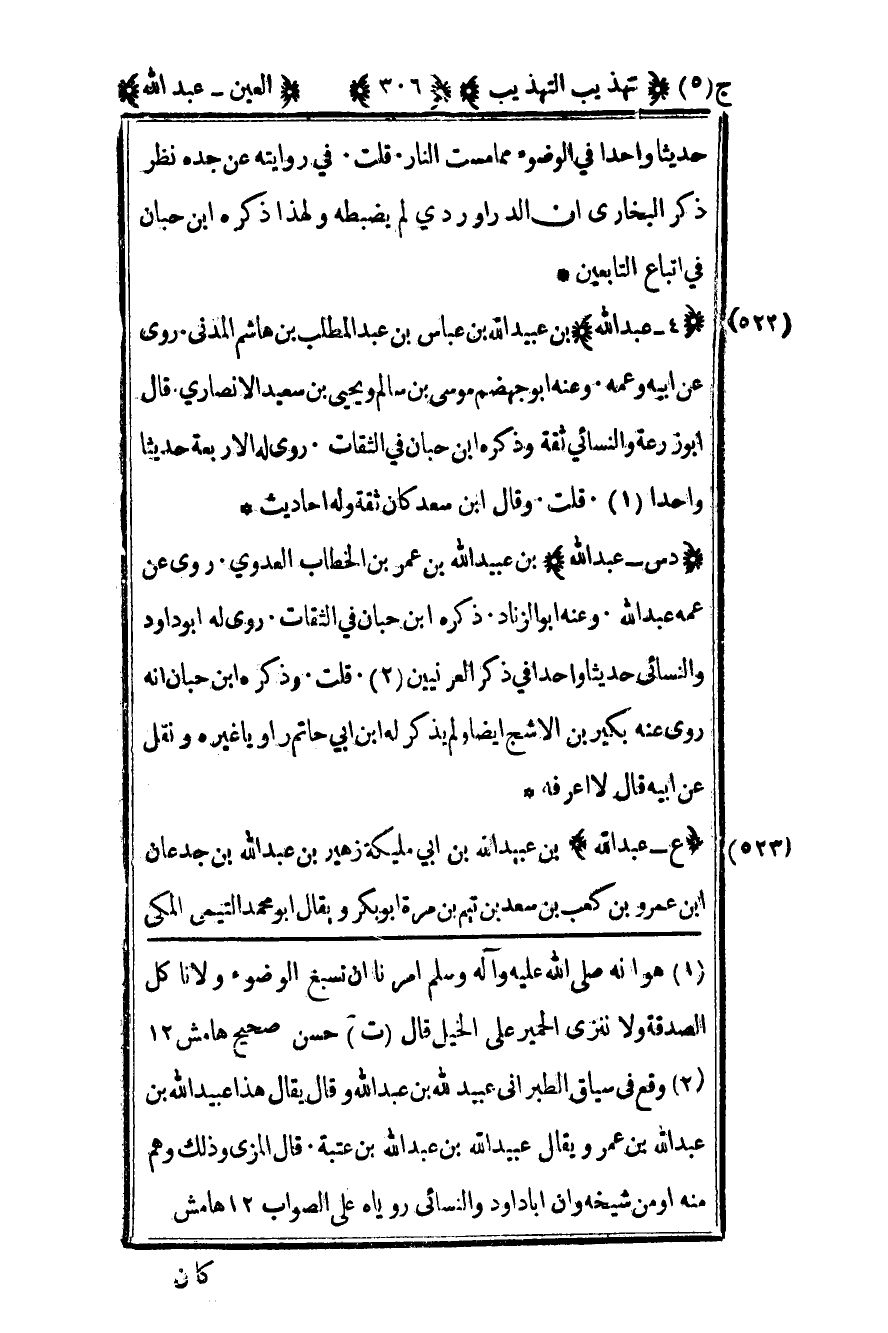 ج(٥) ﴿ تهذيب التهذيب ﴾ ﴿ ٣٠٦ ﴾ ﴿ العين ـ عبد الله ﴾
حديثا واحدا في الوضوء ممامست النار٠ قلت٠ في روايته عن جده نظر
ذكر البخارى ان الدراوردي لم يضبطه ولهذا ذكره ابن حبان
في اتباع التابعين *
(٥٢٢) ﴿ ٤ ـ عبدالله ﴾ بن عبيدالله بن عباس بن عبدالمطلب بن هاشم المدنى٠ روى
عن ابيه وعمه٠ وعنه ابوجهضم موسى بن سالم ويحيى بن سعيد الانصاري٠ قال
ابوزرعة والنسائي ثقة وذكره ابن حبان في الثقات ٠ روى له الاربعة حديثا
واحدا (١) ٠ قلت٠ وقال ابن سعد كان ثقة وله احاديث *
﴿ دس ـ عبدالله ﴾ بن عبيدالله بن عمر بن الخطاب العدوي ٠ روى عن
عمه عبدالله ٠ وعنه ابوالزناد٠ ذكره ابن حبان في الثقات٠ روى له ابوداود
والنسائى حديثا واحدا في ذكر العرنيين (٢)٠ قلت٠ وذكره ابن حبان انه
روى عنه بكير بن الاشج ايضا ولم يذكر له ابن ابي حاتم راويا غيره ونقل
عن ابيه قال لا اعرفه *
(٥٢٣) ﴿ ع ـ عبدالله ﴾ بن عبيدالله بن ابي مليكة زهير بن عبدالله بن جدعان
ابن عمرو بن كعب بن سعد بن تيم بن مرة ابوبكر ويقال ابومحمد التيمى المكى
(١) هو انه صلى الله عليه وآله وسلم امرنا ان نسبغ الوضوء ولا نا كل
الصدقة ولا ننزى الحمير على الخيل قال (ت) حسن صحيح هامش ١٢
(٢) وقع فى سياق الطبرانى عبيد لله بن عبدالله وقال يقال هذا عبيدالله بن
عبدالله بن عمر ويقال عبيدالله بن عبدالله بن عتبة٠ قال المزى وذلك وهم
منه او من شيخه وان اباداود والنسائى روياه على الصواب ١٢ هامش
كان